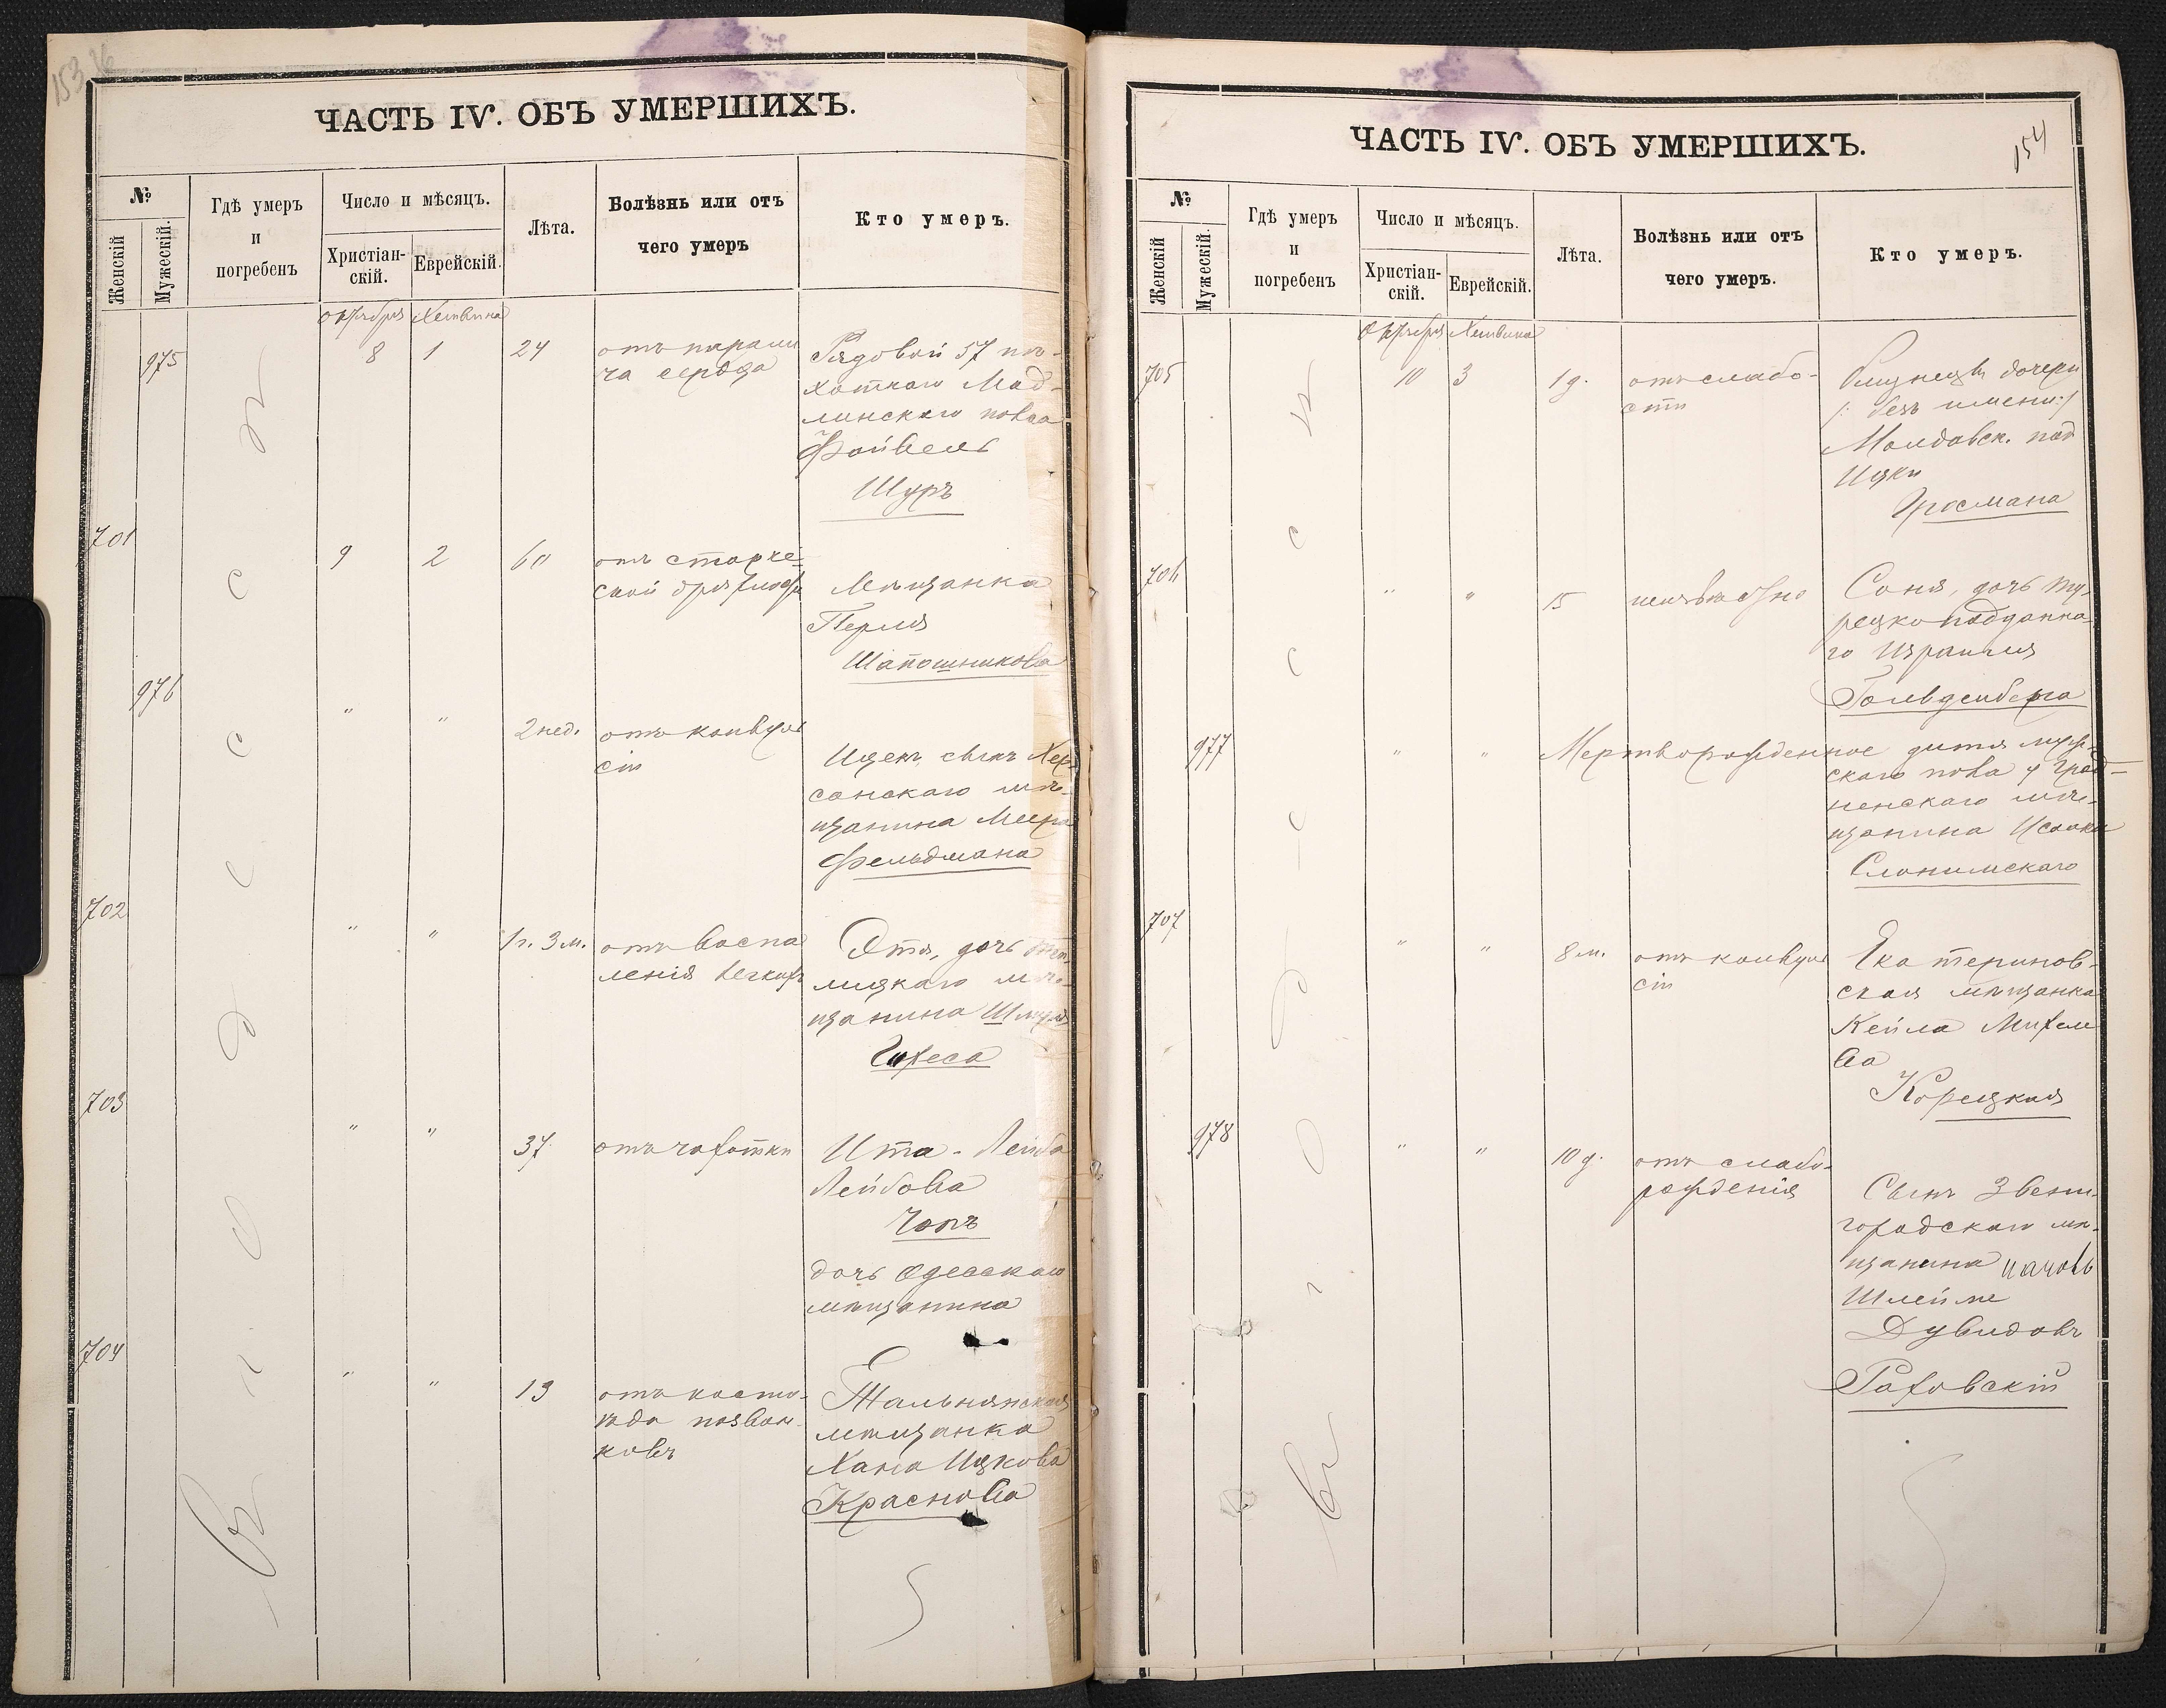 153
ЧАСТЬ IV. ОБЪ УМЕРШИХЪ.
№
Женскій
Мужескій.
Гдѣ умеръ
и
погребенъ
Число и мѣсяцъ.
Христіан-
скій.
Еврейскій.
Лѣта.
Болѣзнь или отъ
чего умеръ
Кто умеръ.
въ г. Одессѣ
Октября Хешвина
975
8
1
24
отъ парали
ча сердца
Рядовой 57 пѣ-
хотнаго Мод-
линскаго полка
Файвель
Шуръ
701
9
2
60
отъ старче-
ской дряхлости
Мѣщанка
Перля
Шапошникова
976
"
"
2 нед.
отъ конвуль
сіи
Ицекъ, сынъ Хер-
сонскаго мѣ-
щанина Меера
Фельдмана
702
"
"
1 г. 3 м.
отъ воспа
ленія легкихъ
Этя, дочь
лицкаго мѣ-
щанина Шмуля
703
"
"
37
отъ чахотки
Ита - Лейба
Лейбова
Чопъ
дочь Одесскаго
мѣщанина
704
"
"
13
отъ косто-
ѣда позвон-
ковъ
Тальнянская
мѣщанка
Хана Ицкова
Краснова
154
ЧАСТЬ IV. ОБЪ УМЕРШИХЪ.
№
Женскій
Мужескій.
Гдѣ умеръ
и
погребенъ
Число и мѣсяцъ.
Христіан-
скій.
Еврейскій.
Лѣта.
Болѣзнь или отъ
чего умеръ.
Кто умеръ.
въ г. Одессѣ
Октября Хешвина
705
10
3
1 д.
отъ слабо-
сти
дочери
/: безъ имени :/
Молдавск. под
Ицки
Гросмана
706
"
"
15
неизвѣстно
Соня, дочь ту-
рецкоподданна-
го Израиля
Гольденберга
977
"
"
Мертворожденное дитя муже-
скаго пола у Грод-
ненскаго мѣ-
щанина Исаака
Слонимскаго
707
"
"
8 м.
отъ конвуль
сіи
Екатеринов-
ская мѣщанка
Кейла Михеле
ва
Корецкая
978
"
"
10 д.
отъ слабо-
рожденія
Сынъ Звени-
городскаго мѣ-
щанина
Шлейме
Дувидовъ
Раховскій